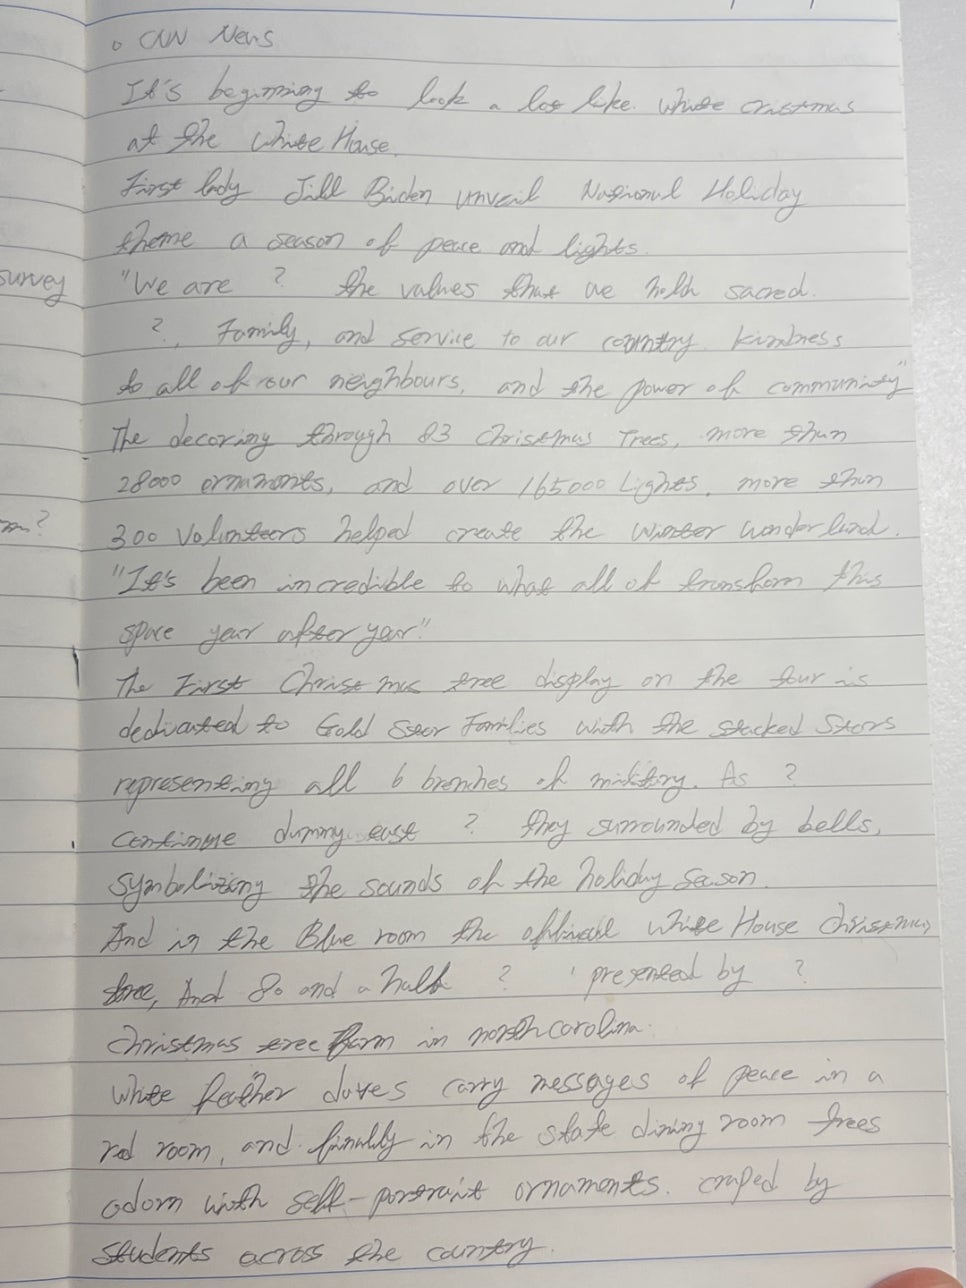 o CNN News
It's beginning to look a lot like. White cristmas
at the White House.
First lady Jill Biden unveil National Holiday
theme a season of peace and lights.
survey
"We are ? the values that we hold sacred.
?, Family, and service to our country. kindness
to all of our neighbours, and the power of community"
The decoring through 83 Christmas Trees, more than
28000 ornaments, and over 165000 Lights, more than
300 Volunteers helped create the winter wonderland.
"It's been incredible to what all of transform this
space year after year."
The First Christmas tree display on the tour is
dedicated to Gold Star Families with the stacked stars
representing all 6 branches of military. As ?
continue dummy east ? they surrounded by bells,
symbolizing the sounds of the holiday season.
And in the Blue room the official White House Christmas
tree, And 80 and a half ? presented by ?
Christmas tree farm in northcarolina.
White feather doves carry messages of peace in a
red room, and finally in the state dining room trees
adorn with self-portrait ornaments. by
students across the country.